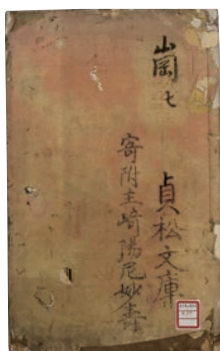 崗七
貞松文庫
寄附主崎陽尼妙壽